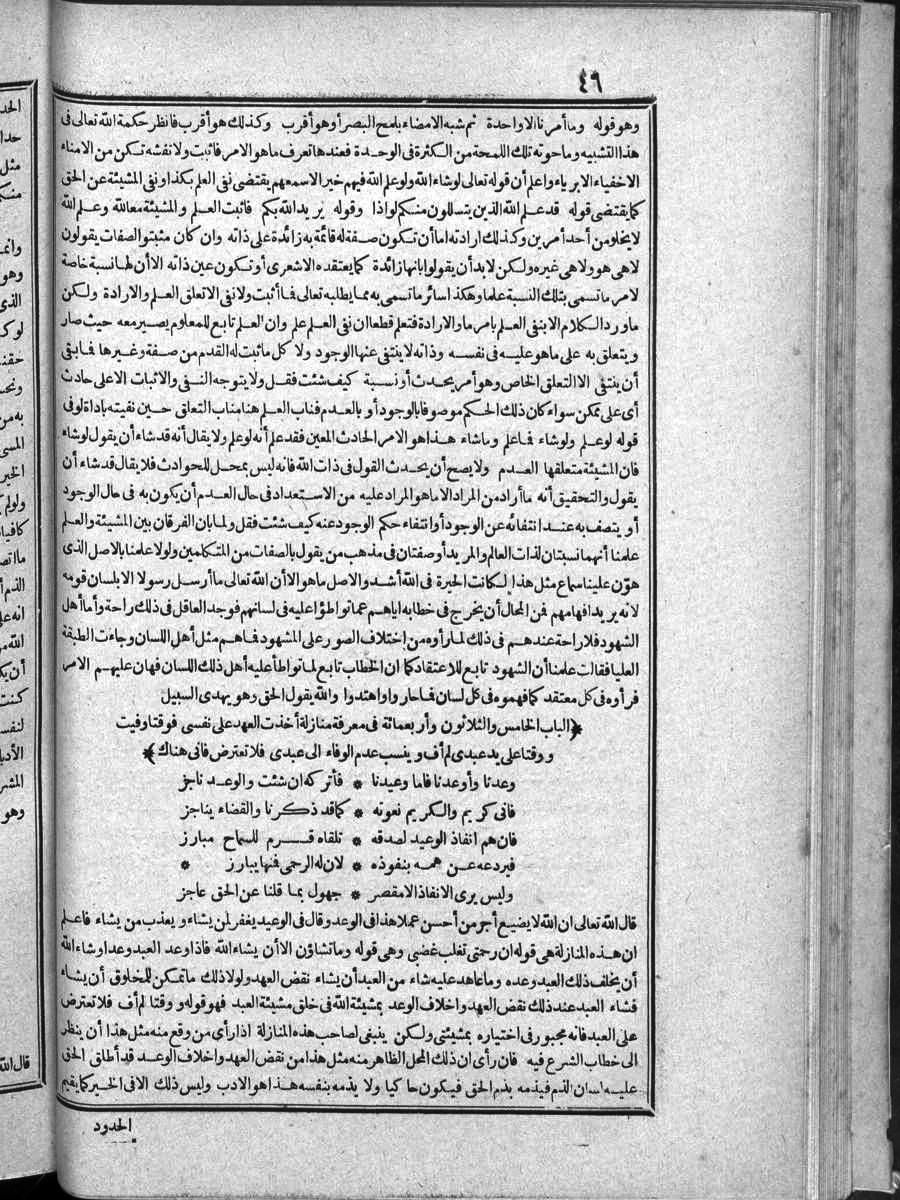 ٤٦
وهو قوله وما أمرنا الا واحدة ثم شبه الامضاء بلمح البصر أو هو أقرب وكذلك هو أقرب فانظر حكمة الله تعالى فى
هذا التشبيه وما حوته تلك اللمحة من الكثرة فى الوحدة فعندها تعرف ما هو الامر فاثبت ولا تفشه تكن من الامناء
الاخفياء الابرياء واعلم أن قوله تعالى لو شاء الله ولو علم الله فيهم خيرا لاسمعهم يقتضى نفى العلم بكذا ونفى المشيئة عن الحق
كما يقتضى قوله قد علم الله الذين يتسللون منكم لواذا وقوله يريد الله بكم فأثبت العلم والمشيئة معا لله وعلم الله
لا يخلو من أحد أمرين وكذلك ارادته اما أن تكون صفة له قائمة به زائدة على ذاته وان كان مثبتو الصفات يقولون
لا هى هو ولا هى غيره ولكن لا بد أن يقولوا بانها زائدة كما يعتقده الاشعرى أو تكون عين ذاته الا أن لها نسبة خاصة
لامر ما تسمى بتلك النسبة علما وهكذا سائر ما تسمى به مما يطلبه تعالى فما أثبت ولا نفى الا تعلق العلم والارادة ولكن
ما ورد الكلام الا بنفى العلم بامر ما والارادة فتعلم قطعا ان نفى العلم علم وان العلم تابع للمعلوم يصير معه حيث صار
ويتعلق به على ما هو عليه فى نفسه وذاته لا ينتفى عنها الوجود ولا كل ما ثبت له القدم من صفة وغيرها فما بقى
أن ينتفى الا التعلق الخاص وهو أمر يحدث أو نسبة كيف شئت فقل ولا يتوجه النفى والاثبات الا على حادث
أى على ممكن سواء كان ذلك الحكم موصوفا بالوجود أو بالعدم فناب العلم هنا مناب التعلق حين نفيته باداة لو فى
قوله لو علم ولو شاء فما علم وما شاء هذا هو الامر الحادث المعين فقد علم أنه لو علم ولا يقال أنه قد شاء أن يقول لو شاء
فان المشيئة متعلقها العدم ولا يصح أن يحدث القول فى ذات الله فانه ليس بمحل للحوادث فلا يقال قد شاء أن
يقول والتحقيق أنه ما أراد من المراد الا ما هو المراد عليه من الاستعداد فى حال العدم أن يكون به فى حال الوجود
أو يتصف به عند انتفائه عن الوجود أو انتفاء حكم الوجود عنه كيف شئت فقل ولما بان الفرقان بين المشيئة والعلم
علمنا أنهما نسبتان لذات العالم والمريد أو صفتان فى مذهب من يقول بالصفات من المتكلمين ولولا علمنا بالاصل الذى
هوّن علينا سماع مثل هذا لكانت الحيرة فى الله أشد والاصل ما هو الا أن الله تعالى ما أرسل رسولا الا بلسان قومه
لانه يريد افهامهم فمن المحال أن يخرج فى خطابه اياهم عما تواطؤا عليه فى لسانهم فوجد العاقل فى ذلك راحة وأما أهل
الشهود فلا راحة عندهم فى ذلك لما رأوه من اختلاف الصور على المشهود فاهم مثل أهل اللسان وجاءت الطبقة
العليا فقالت علمنا أن الشهود تابع للاعتقاد كما ان الخطاب تابع لما تواطأ عليه أهل ذلك اللسان فهان عليهم الامر
فرأوه فى كل معتقد كما فهموه فى كل لسان فما حاروا واهتدوا والله يقول الحق وهو يهدى السبيل
﴿الباب الخامس والثلاثون وأربعمائة فى معرفة منازلة أخذت العهد على نفسى فوقتا وفيت
ووقتا على يد عبدى لم أف وينسب عدم الوفاء الى عبدى فلا تعترض فانى هناك﴾
وعدنا وأوعدنا فاما وعيدنا * فأتركه ان شئت والوعد ناجز
فانى كريم والكريم نعوته * كما قد ذكرنا والقضاء يناجز
فان هم انفاذ الوعيد لصدقه * تلقاه قرم للسماح مبارز
فيردعه عن همه بنفوذه * لان له الرحمى فنها يبارز *
وليس يرى الانفاذ الا مقصر * جهول بما قلنا عن الحق عاجز
قال الله تعالى ان الله لا يضيع أجر من أحسن عملا هذا فى الوعد وقال فى الوعيد يغفر لمن يشاء ويعذب من يشاء فاعلم
ان هذه المنازلة هى قوله ان رحمتى تغلب غضبى وهى قوله وما تشاؤن الا أن يشاء الله فاذا وعد العبد وعدا وشاء الله
أن يخلف ذلك العبد وعده وما عاهد عليه شاء من العبد أن يشاء نقض العهد ولولا ذلك ما تمكن للمخلوق أن يشاء
فشاء العبد عند ذلك نقض العهد واخلاف الوعد بمشيئة الله فى خلق مشيئة العبد فهو قوله ووقتا لم أف فلا تعترض
على العبد فانه مجبور فى اختياره بمشيئتى ولكن ينبغى لصاحب هذه المنازلة اذا رأى من وقع منه مثل هذا أن ينظر
الى خطاب الشرع فيه فان رأى ان ذلك المحل الظاهر منه مثل هذا من نقض العهد واخلاف الوعد قد أطلق الحق
عليه لسان الذم فيذمه بذم الحق فيكون حاكيا ولا يذمه بنفسه هذا هو الادب وليس ذلك الا فى الخير كما يقيم
الحدود